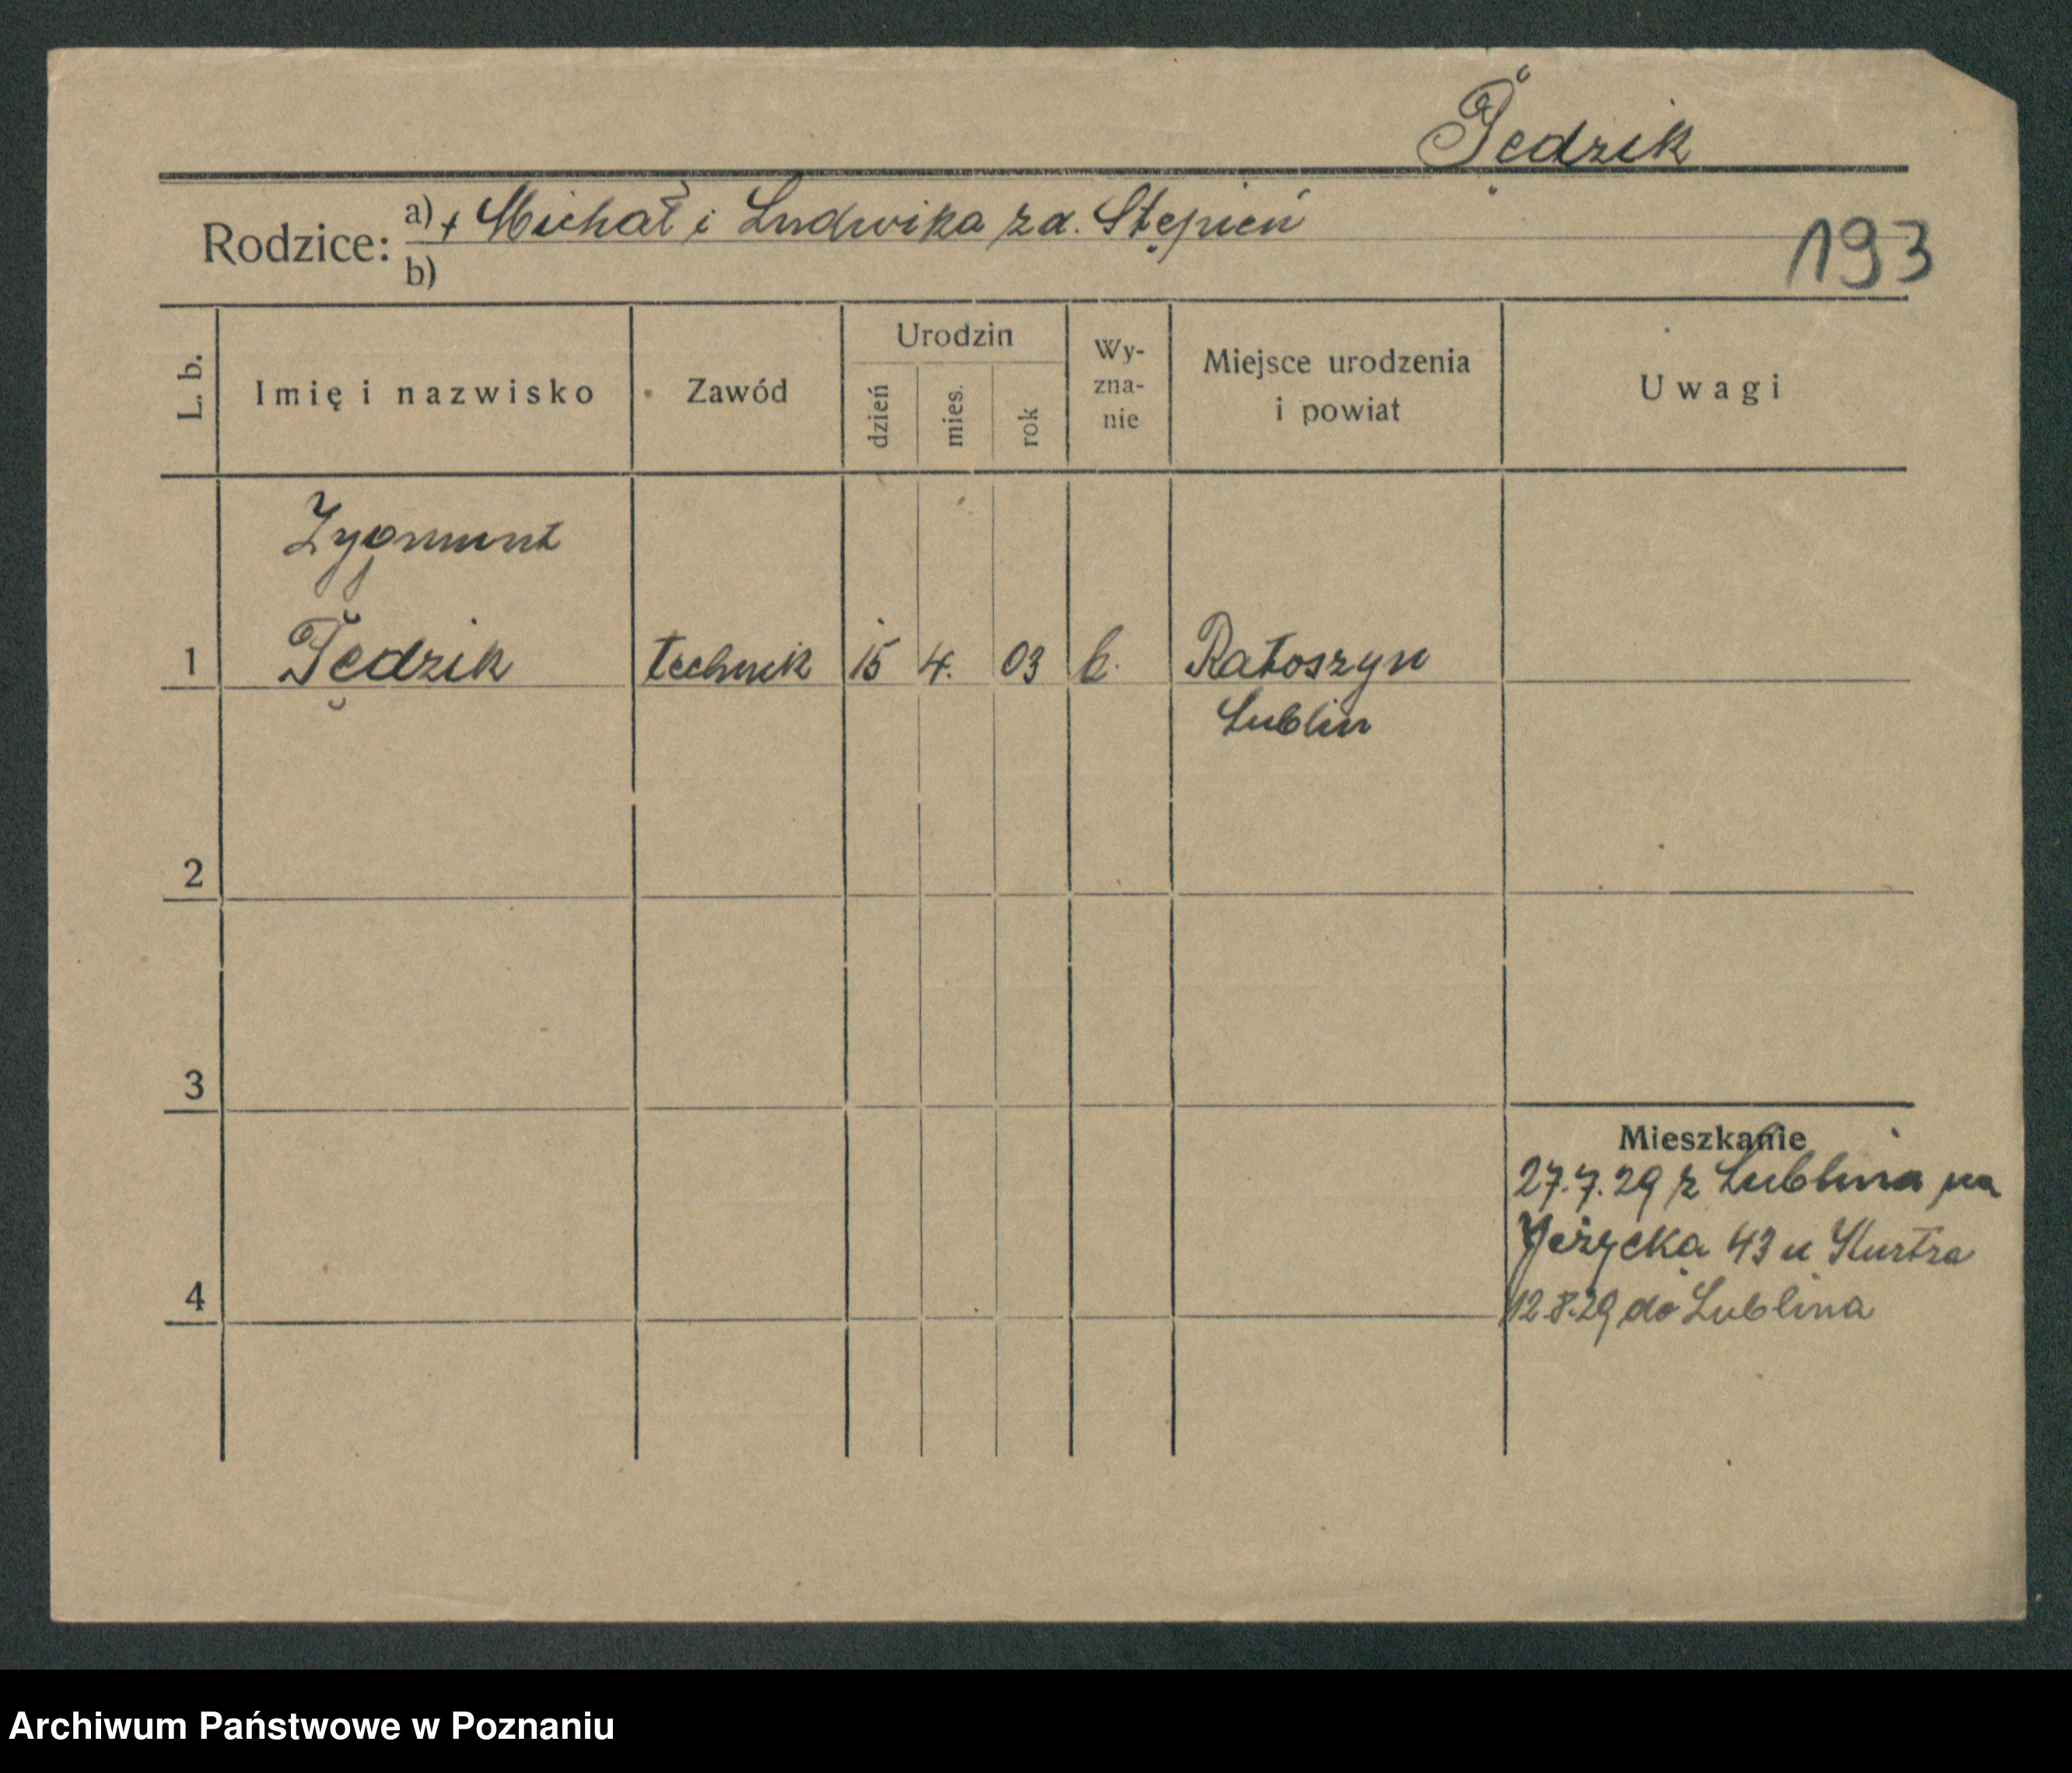 Pędzik
Rodzice: a) + Michał i Ludwika zd. Stępień
b)
193
L. b. Imię i nazwisko Zawód Urodzin dzień mies. rok Wy-zna-nie Miejsce urodzenia i powiat Uwagi
Zygmunt
1 Pędzik technik 15 4. 03 k. Ratoszyn
Lublin
2
3
Mieszkanie
27.7.29 z Lublina na
Jeżycka 43 u
4 12.8.29 do Lublina
Archiwum Państwowe w Poznaniu